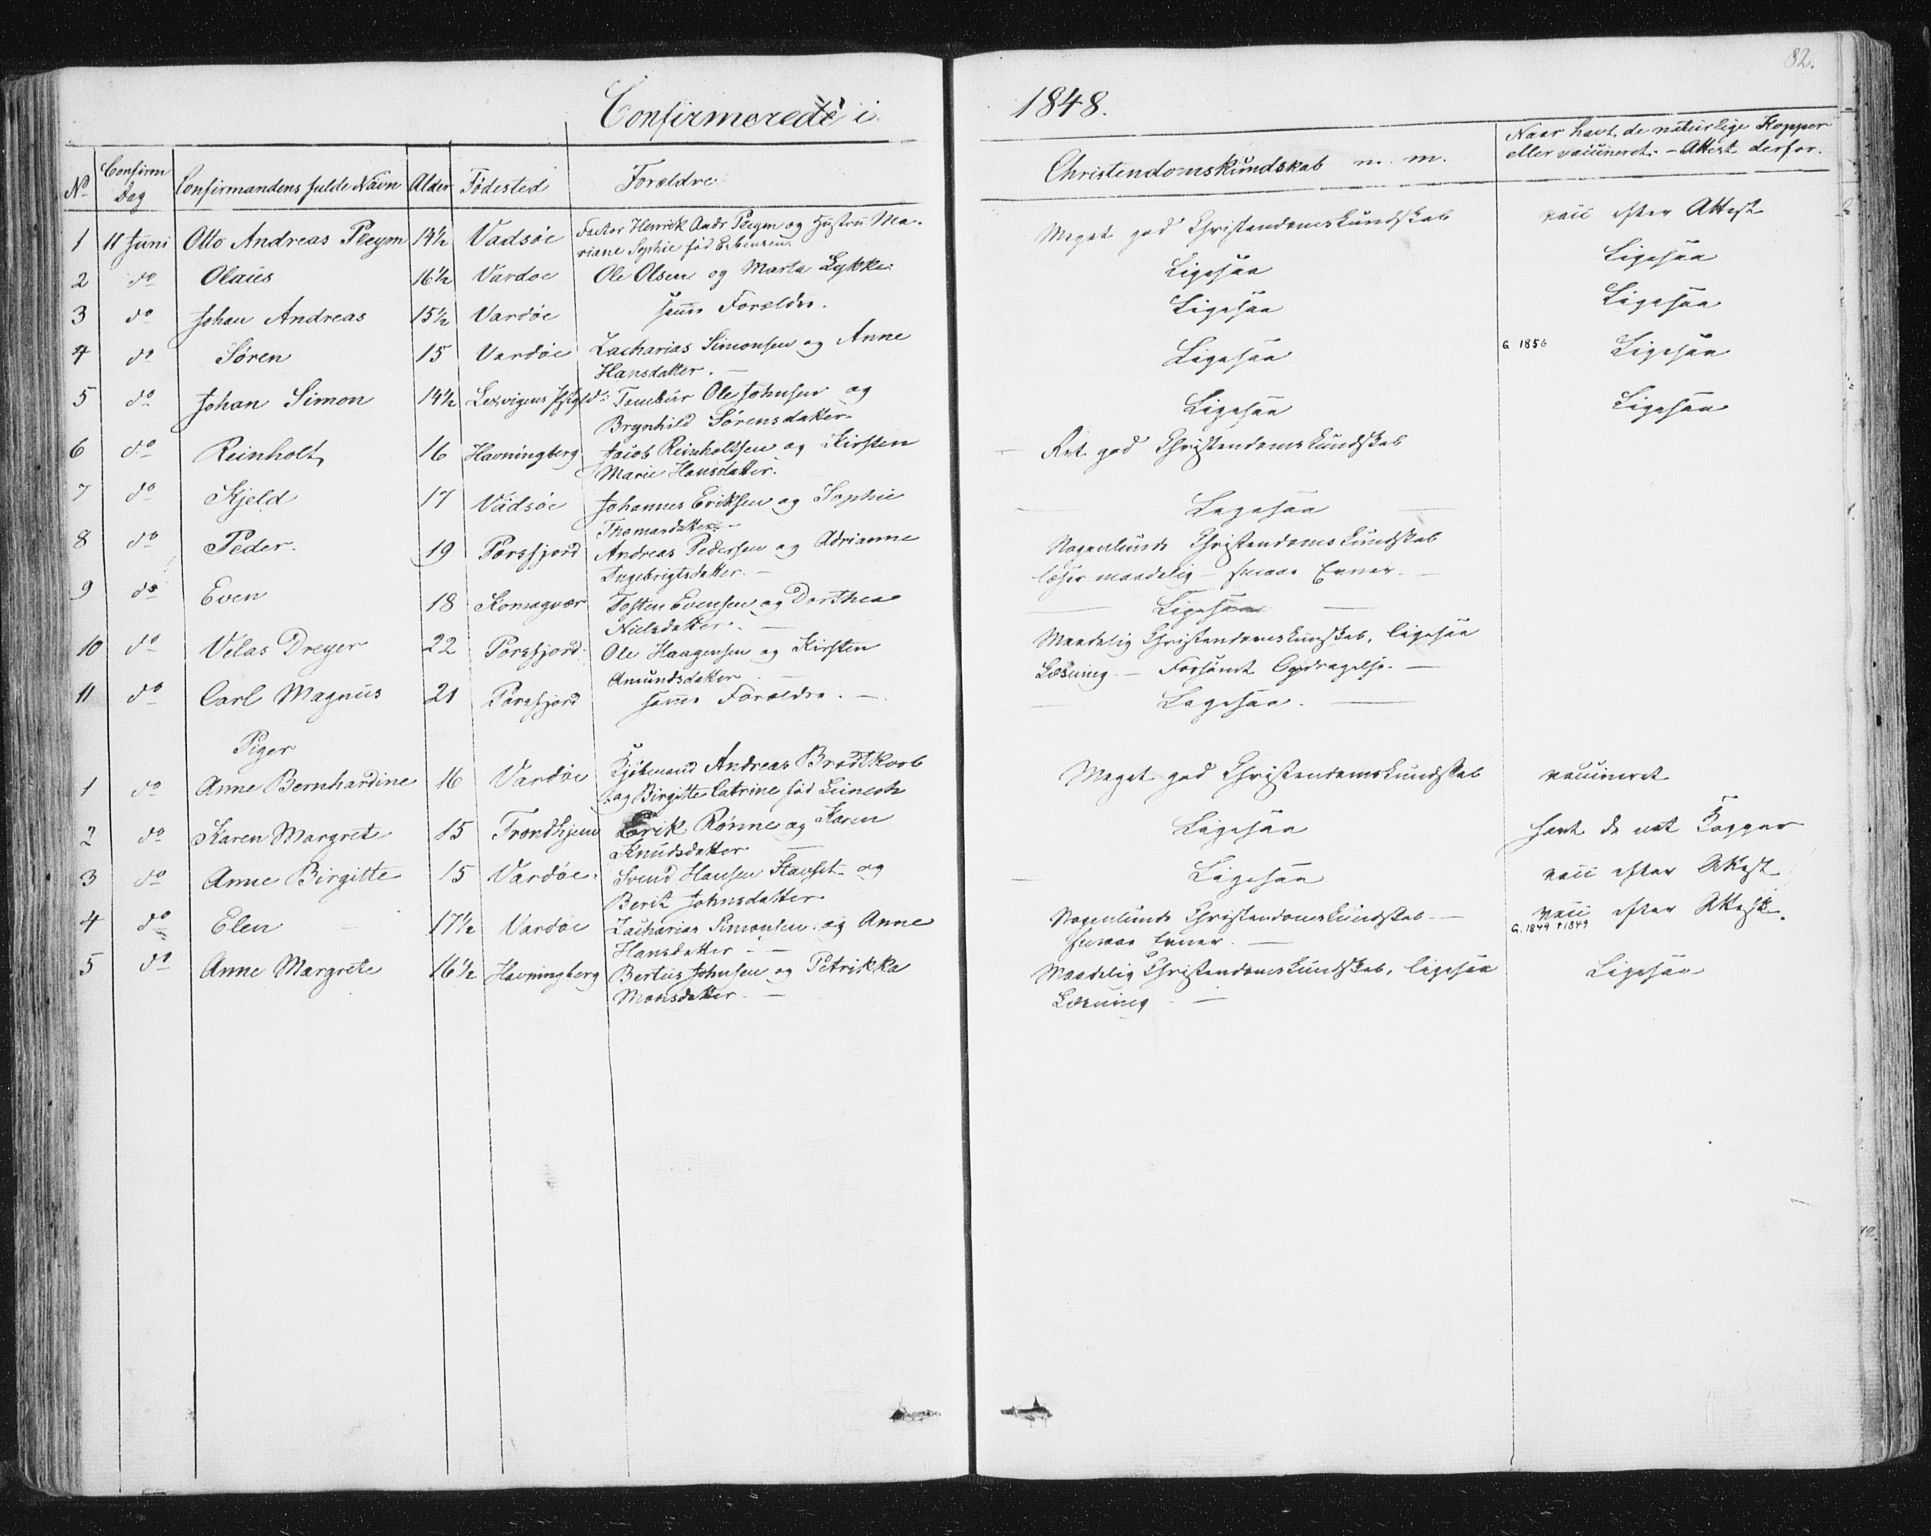 82.
Confirmerede i 1848.
No Confirm Dag Confirmandens fulde Navn Alder Fødested Forældre Christendomskundskab m. m. Naar havt de naturlige Kopper
eller vaccineret. - Attest derfor.
1 11 Juni Otto Andreas 14½ Vadsøe Factor Henrik Andr og Hustru Ma- Meget god Christendomskundskab vacc efter Attest
riane Sophie fød Esbensen.
2 do Olaus 16½ Vardøe Ole Olsen og Marta Lykke. Ligesaa Ligesaa
3 do Johan Andreas 15½ Vardøe samme Forældre. Ligesaa Ligesaa
4 do Søren 15 Vardøe Zacharias Simonsen og Anne Ligesaa G. 1856 Ligesaa
Hansdatter. —
5 do Johan Simon 14½ Lexvigens Tambur Ole Johnsen og Ligesaa Ligesaa
Brynhild Sørensdatter.
6 do Reinholt 16 Havningberg Jacob Reinholtsen og Kirsten — Ret god Christendomskundskab
Marie Hansdatter.
7 do Kjeld 17 Vadsøe Johannes Eriksen og Sophie — Ligesaa —
Thomasdatter. —
8 do Peder. 19 Persfjord Andreas Pedersen og Adrianne Nogenlunde Christendomskundskab
Ingebrigtsdatter. — læser maadelig — smaae Evner. —
9 do Even 18 Komagvær Tosten Evensen og Dorthea — Ligesaa —
Nielsdatter. —
10 do Velas Dreyer 22 Persfjord Ole Haagensen og Kirsten Maadelig Christendomskundskab, ligesaa
Amundsdatter — Læsning. — Forsømt Opdragelse. —
11 do Carl Magnus 21 Persfjord samme Forældre. — — Ligesaa. —
Piger
1 do Anne Bernhardine 16 Vardøe Kjøbmand Andreas Brodtkorb Meget god Christendomskundskab vaccineret
og Birgitte Catrine fød
2 do Karen Margrete 15 Trondhjem Erik Rønne og Karen Ligesaa havt de nat Kopper
Knudsdatter —
3 do Anne Birgitte 15 Vardøe. Svend Hansen Stavset og — Ligesaa vacc efter Attest
Berit Johnsdatter.
4 do Elen 17½ Vardøe Zacharias Simonsen og Anne Nogenlunde Christendomskundskab — vacc efter Attest.
Hansdatter — smaae Evner. — G. 1849 +1849
5 do Anne Margrete 16½ Havningberg Bertus Johnsen og Petrikka Maadelig Christendomskundskab, ligesaa Ligesaa
Monsdatter. — Læsning —